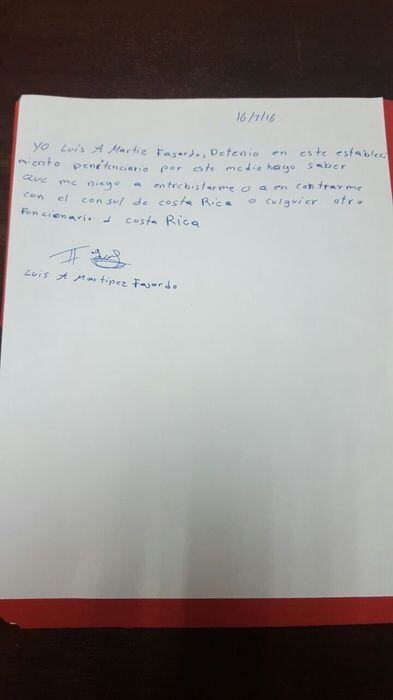 16/7/16
Yo Luis A Martiz Fagardo, Detenio en este estableci
miento penitenciario por este medio hago saber
que me niego a entrebistarme o a en contrarme
con el consul de costa Rica o culquier otro
Funcionario d costa Rica
Luis A Martinez Fajardo